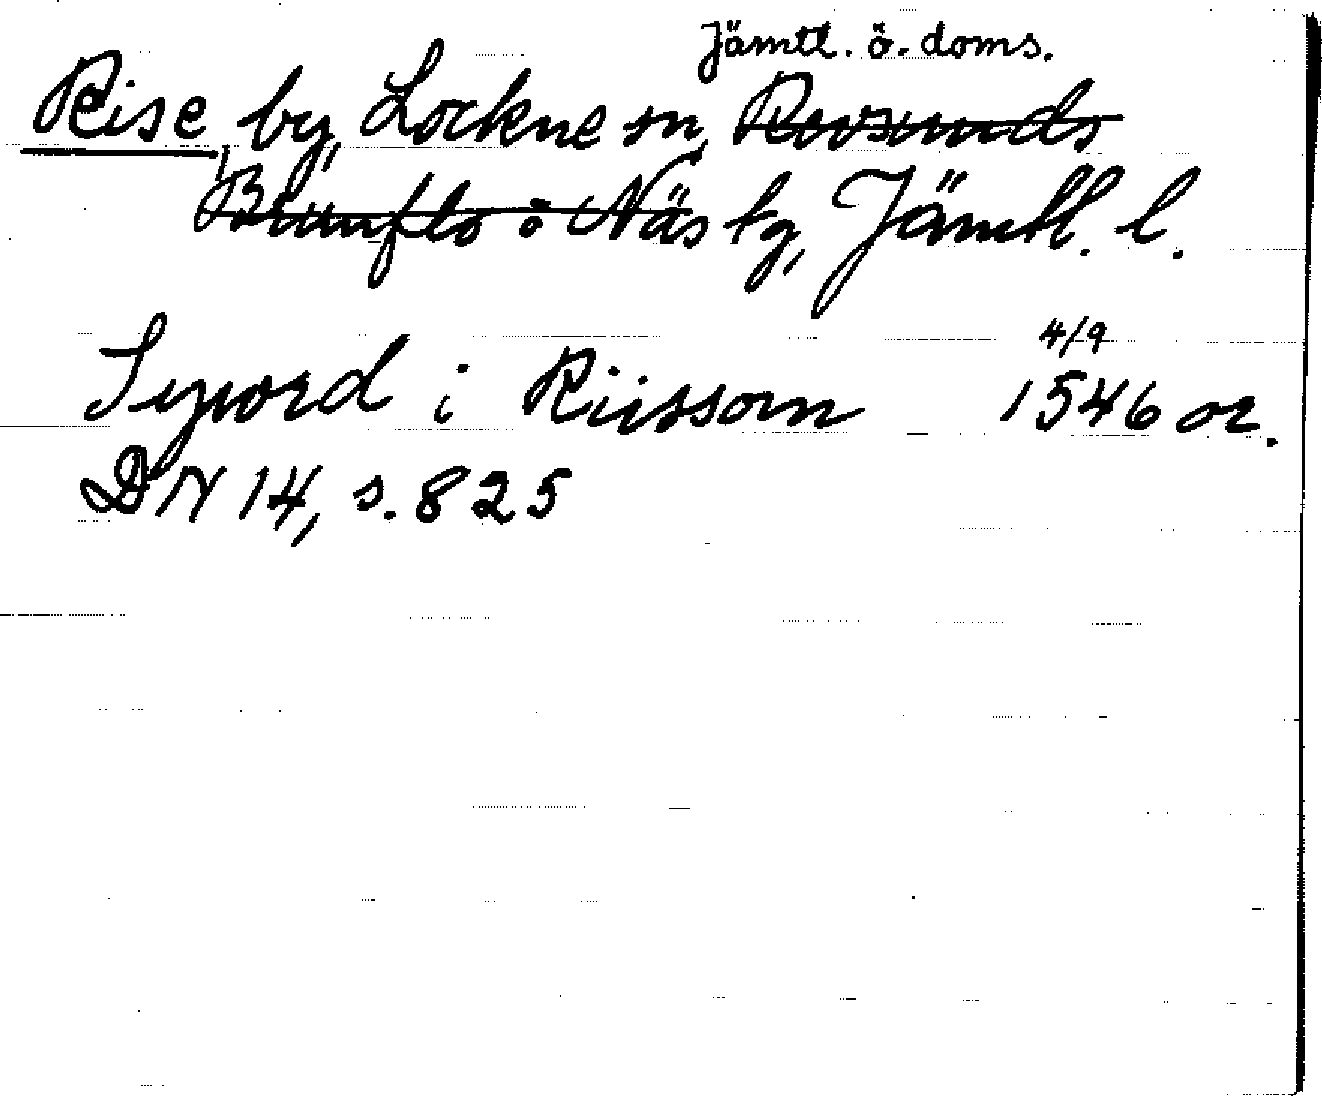 Jämtl. ö. doms.
Rise, by, Lockne sn, Revsunds
Brunflo o Näs tg, Jämtl. l.
4/9
Syword i Riissom 1546 or.
DN 14, s. 825